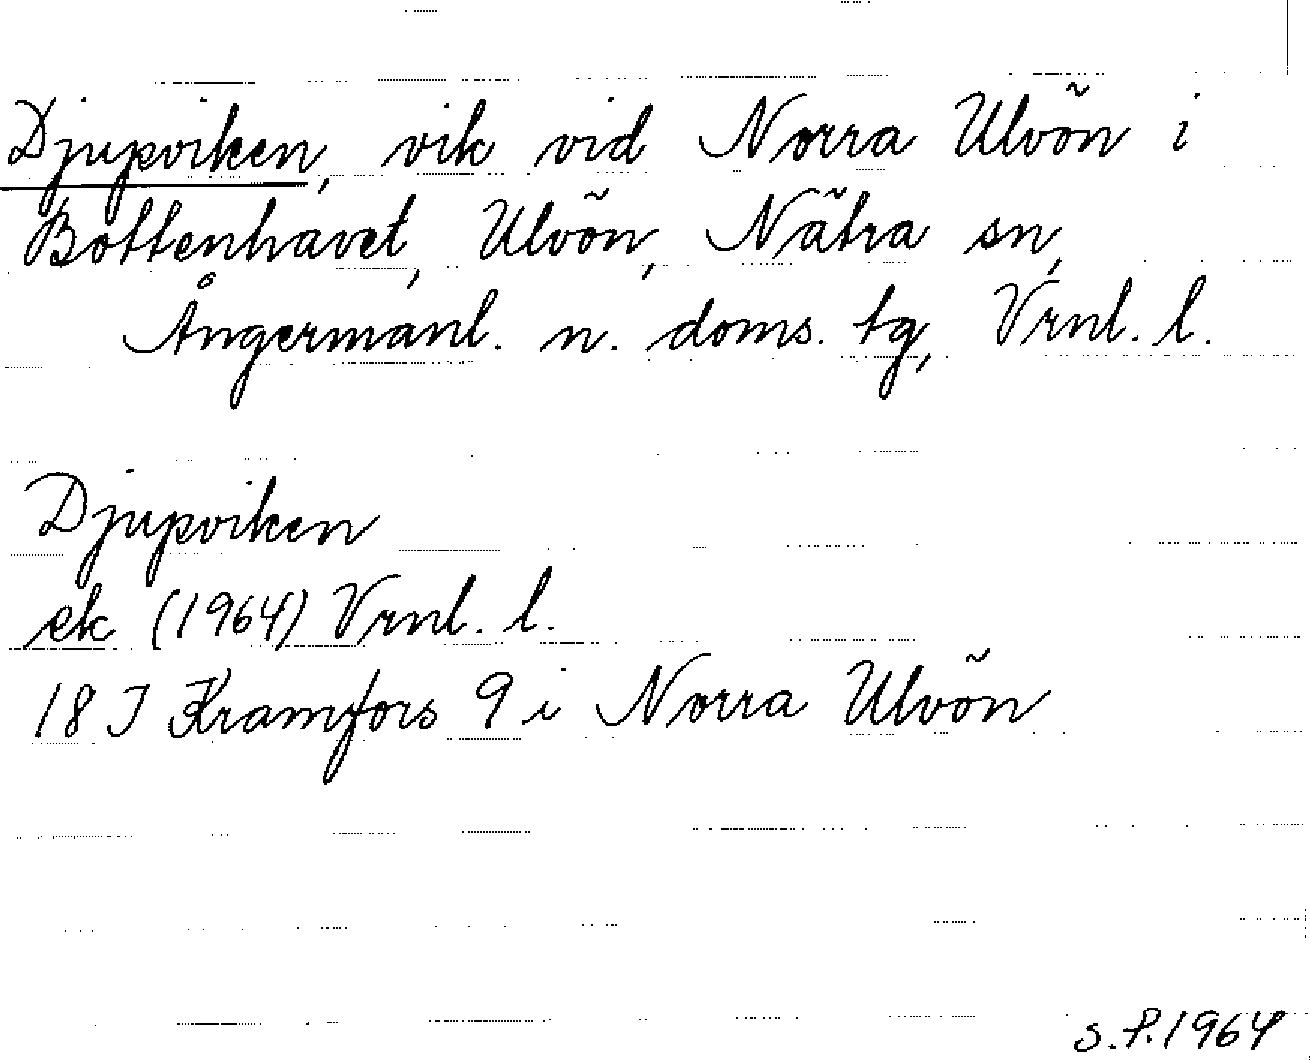 Djupviken, vik vid Norra Ulvön i
Bottenhavet, Ulvön, Nätra sn,
Ångermanl. n. doms. tg, Vrnl. l.
Djupviken
ek (1964) Vrnl. l.
18 I Kramfors 9 i Norra Ulvön
S.P. 1964